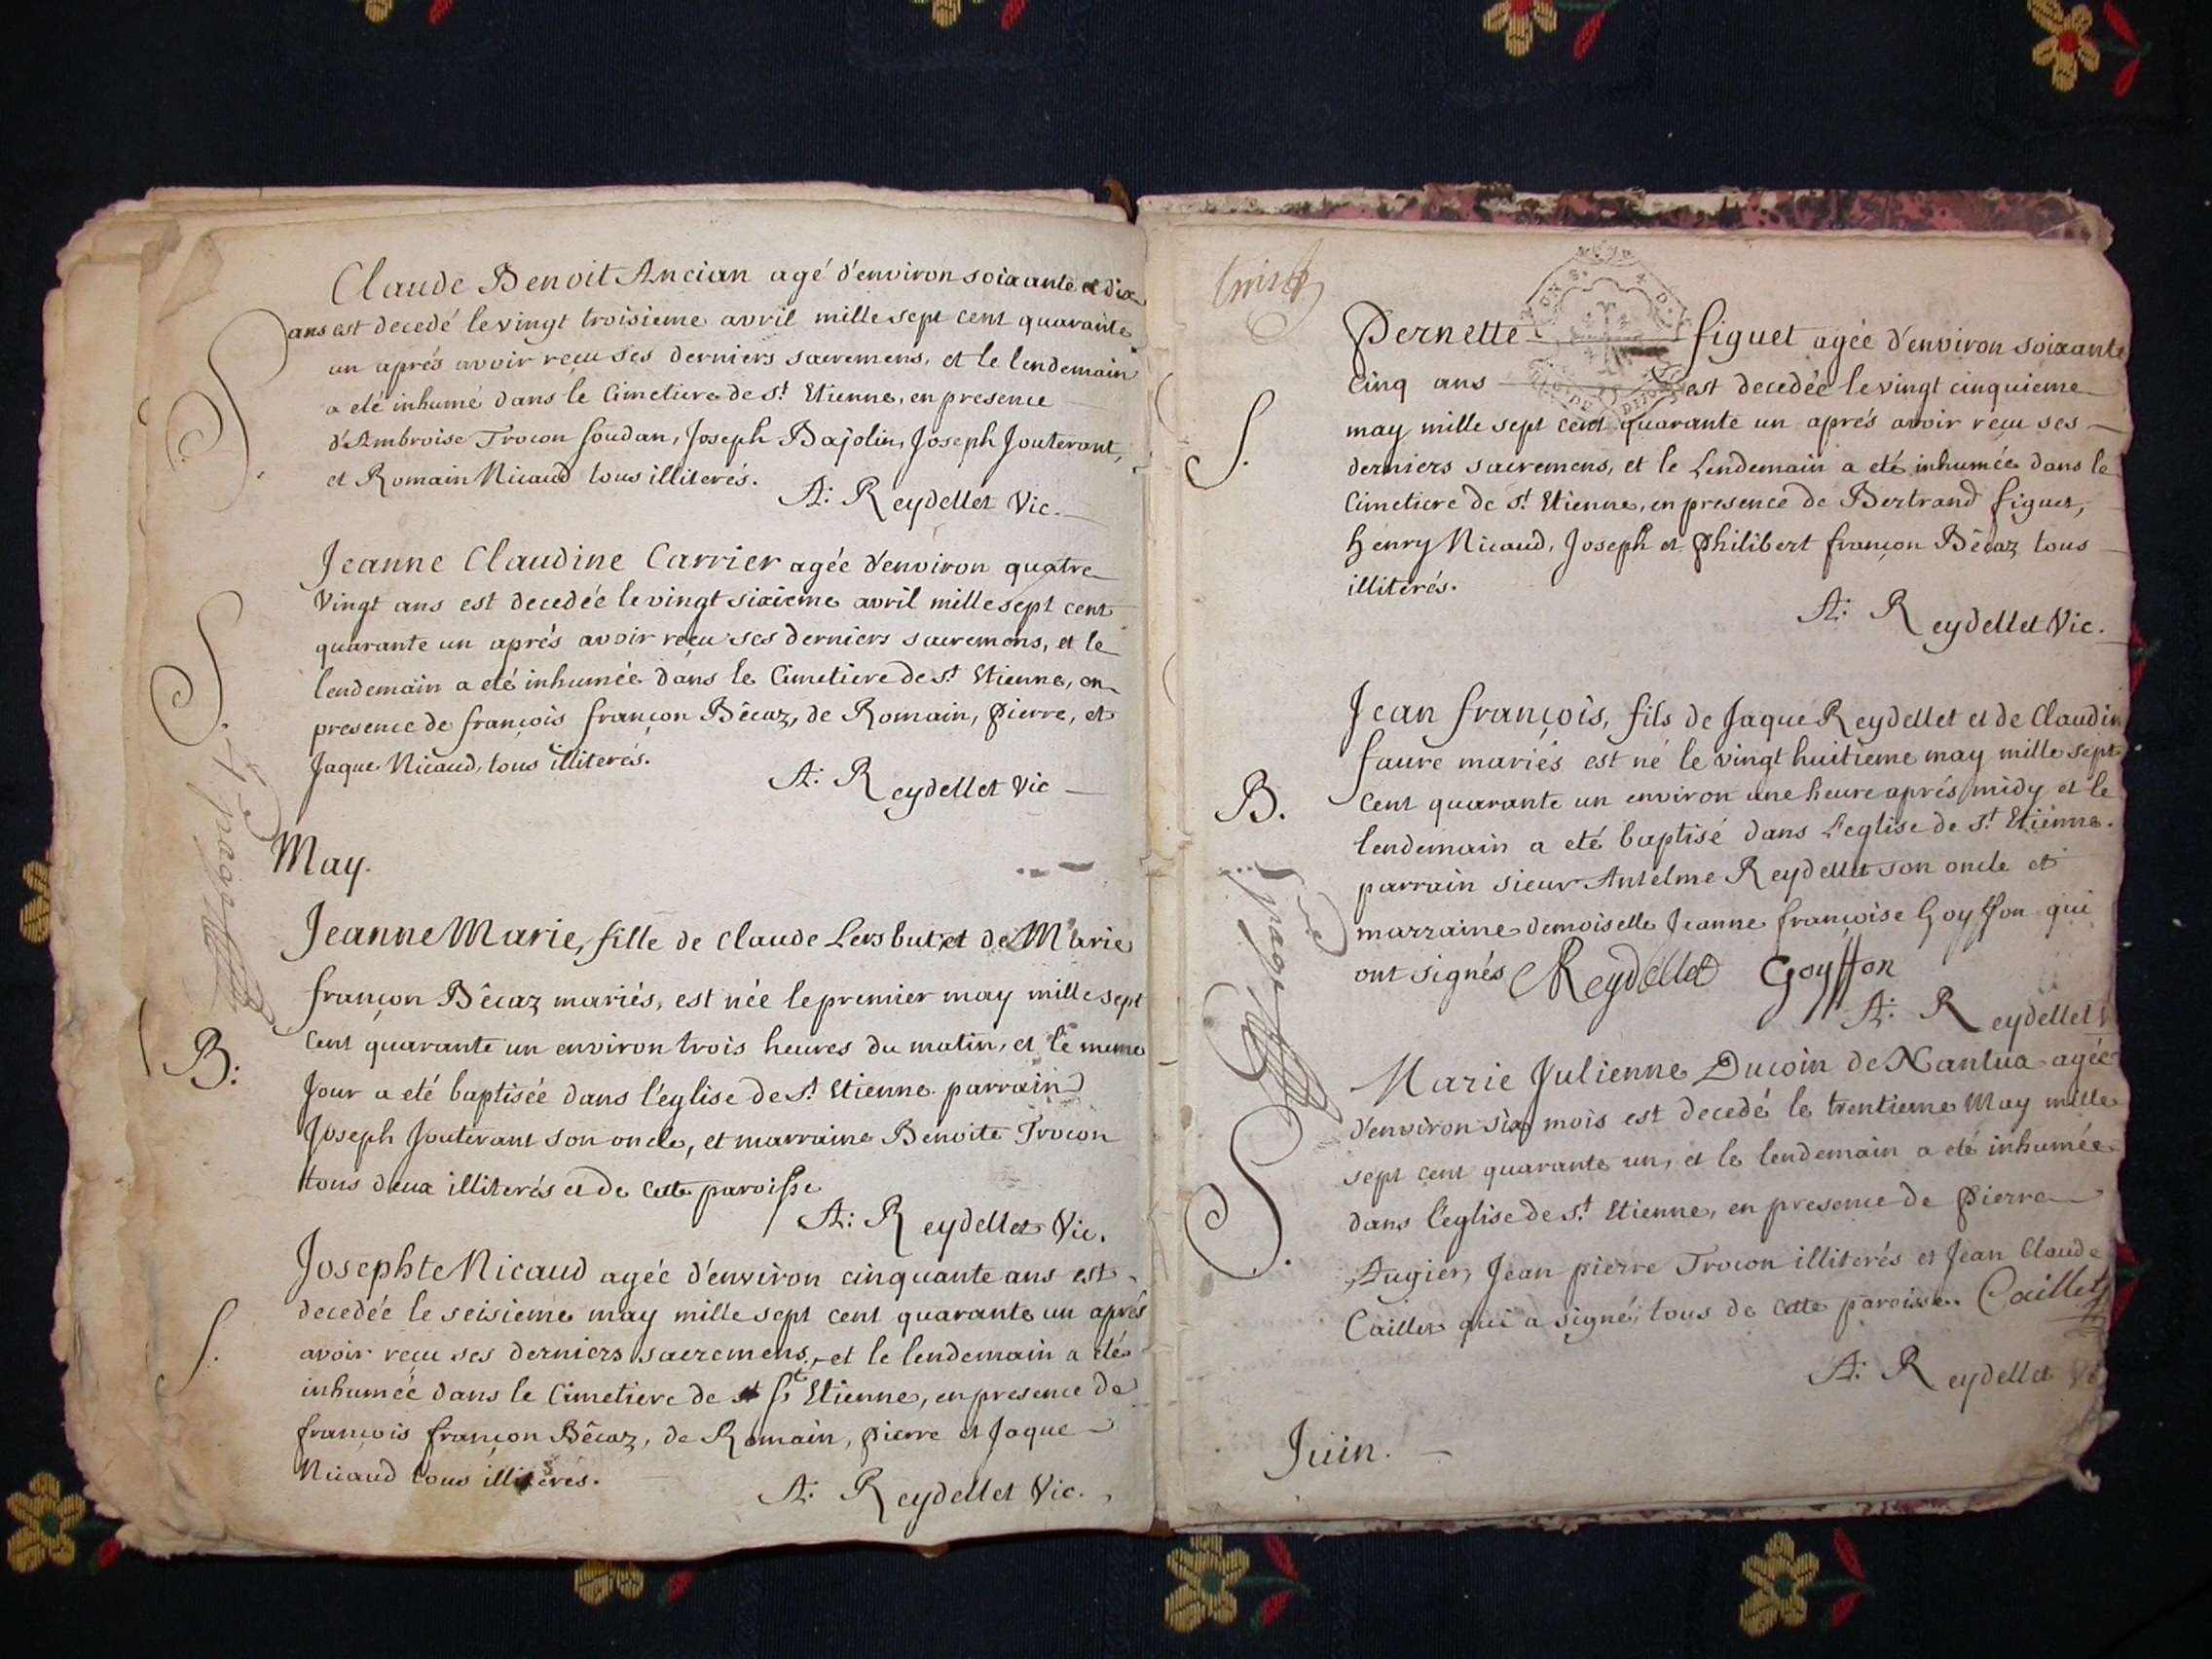 Claude Benoit Ancian agé d'environ soixante et dix
ans est decedé le vingt troisieme avril mille sept cent quarante
un aprés avoir reçu ses derniers sacremens, et le lendemain
a eté inhumé dans le Cimetiere de St Etienne, en presence
d'Ambroise Trocon Soudan, Joseph Bajolin, Joseph Jouterant,
et Romain Nicaud tous illiterés.
A: Reydellet Vic.
S.
Jeanne Claudine Carrier agée d'environ quatre
Vingt ans est decedée le vingt sixieme avril mille sept cent
quarante un aprés avoir reçu ses derniers sacremens, et le
lendemain a eté inhumée dans le Cimetiere de St Etienne, en
presence de françois françon Bêcaz, de Romain, pierre, et
Jaque Nicaud, tous illiterés.
A: Reydellet Vic
S.
May.
Jeanne Marie, fille de Claude Lersbut et de Marie
françon Bêcaz mariés, est née le premier may mille sept
Cent quarante un environ trois heures du matin, et le meme
Jour a eté baptisée dans l'église de St Etienne. parrain
Joseph Jouterant son oncle, et marraine Benoite Trocon
tous deux illiterés et de cette paroisse
A: Reydellet Vic.
B:
Josephte Nicaud agée d'environ cinquante ans est
decedée le seisieme may mille sept cent quarante un aprés
avoir reçu ses derniers sacremens, et le lendemain a eté
inhumée dans le Cimetiere de St Etienne, en presence de
françois françon Bêcaz, de Romain, pierre et Jaque
Nicaud tous illiterés.
A: Reydellet Vic.
S.
page
Pernette figuet agée d'environ soixante
Cinq ans est decedée le vingt cinquieme
may mille sept cent quarante un aprés avoir reçu ses
derniers sacremens, et le Lendemain a eté inhumée dans le
Cimetiere de St Etienne, en presence de Bertrand figuet,
henry Nicaud, Joseph et philibert françon Bêcaz tous
illiterés.
A: Reydellet Vic.
S.
Jean françois, fils de Jaque Reydellet et de Claudin
faure mariés est né le vingt huitieme may mille sept
Cent quarante un environ une heure aprés midy et le
lendemain a eté baptisé dans L'eglise de St Etienne.
parrain sieur Antelme Reydellet son oncle et
marraine demoiselle Jeanne françoise Goyffon qui
ont signés Reydellet Goyffon
A: Reydellet V
B.
page
Marie Julienne Ducoin de Nantua agée
d'environ six mois est decedé le trentieme May mille
sept cent quarante un, et le lendemain a eté inhumée
dans l'église de St Etienne, en presence de pierre
Augier, Jean pierre Trocon illiterés et Jean Claude
Caillet qui a signé, tous de cette paroisse. Caillet
A: Reydellet Vi
S.
Juin.